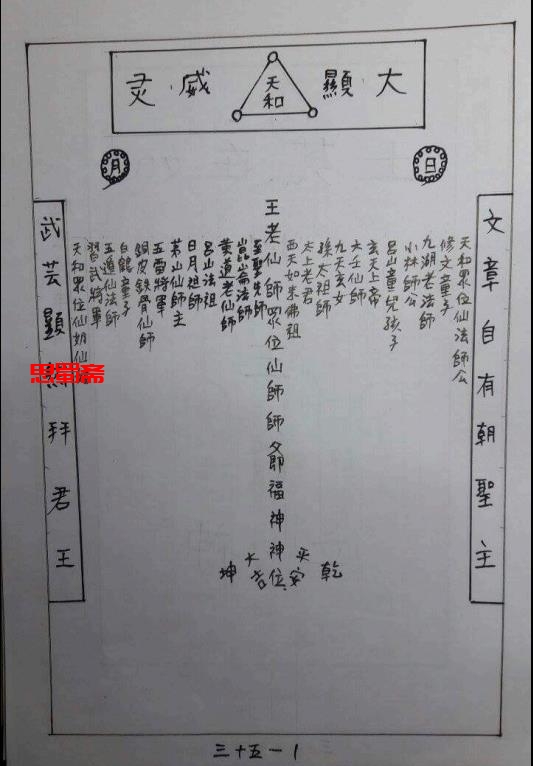 大顯威灵
天和
日
月
文章自有朝聖主
天和眾位仙法師公
修文童子
九湖老法師
小林師公
呂山童兒孩子
玄天上帝
六壬仙師
九天玄女
孫太祖師
太上老君
西天如来佛祖
王老仙師眾位仙師師爺福神神位
至聖先師
崑崙法師
黃道老仙師
呂山法祖
日月祖師
茅山仙師主
五雷將軍
銅皮鉄骨仙師
白鶴童子
五遁仙法師
習武將軍
天和眾位仙姐仙
武芸顯烈拜君王
乾
平安
大吉
坤
思蜀斋
三十五-1